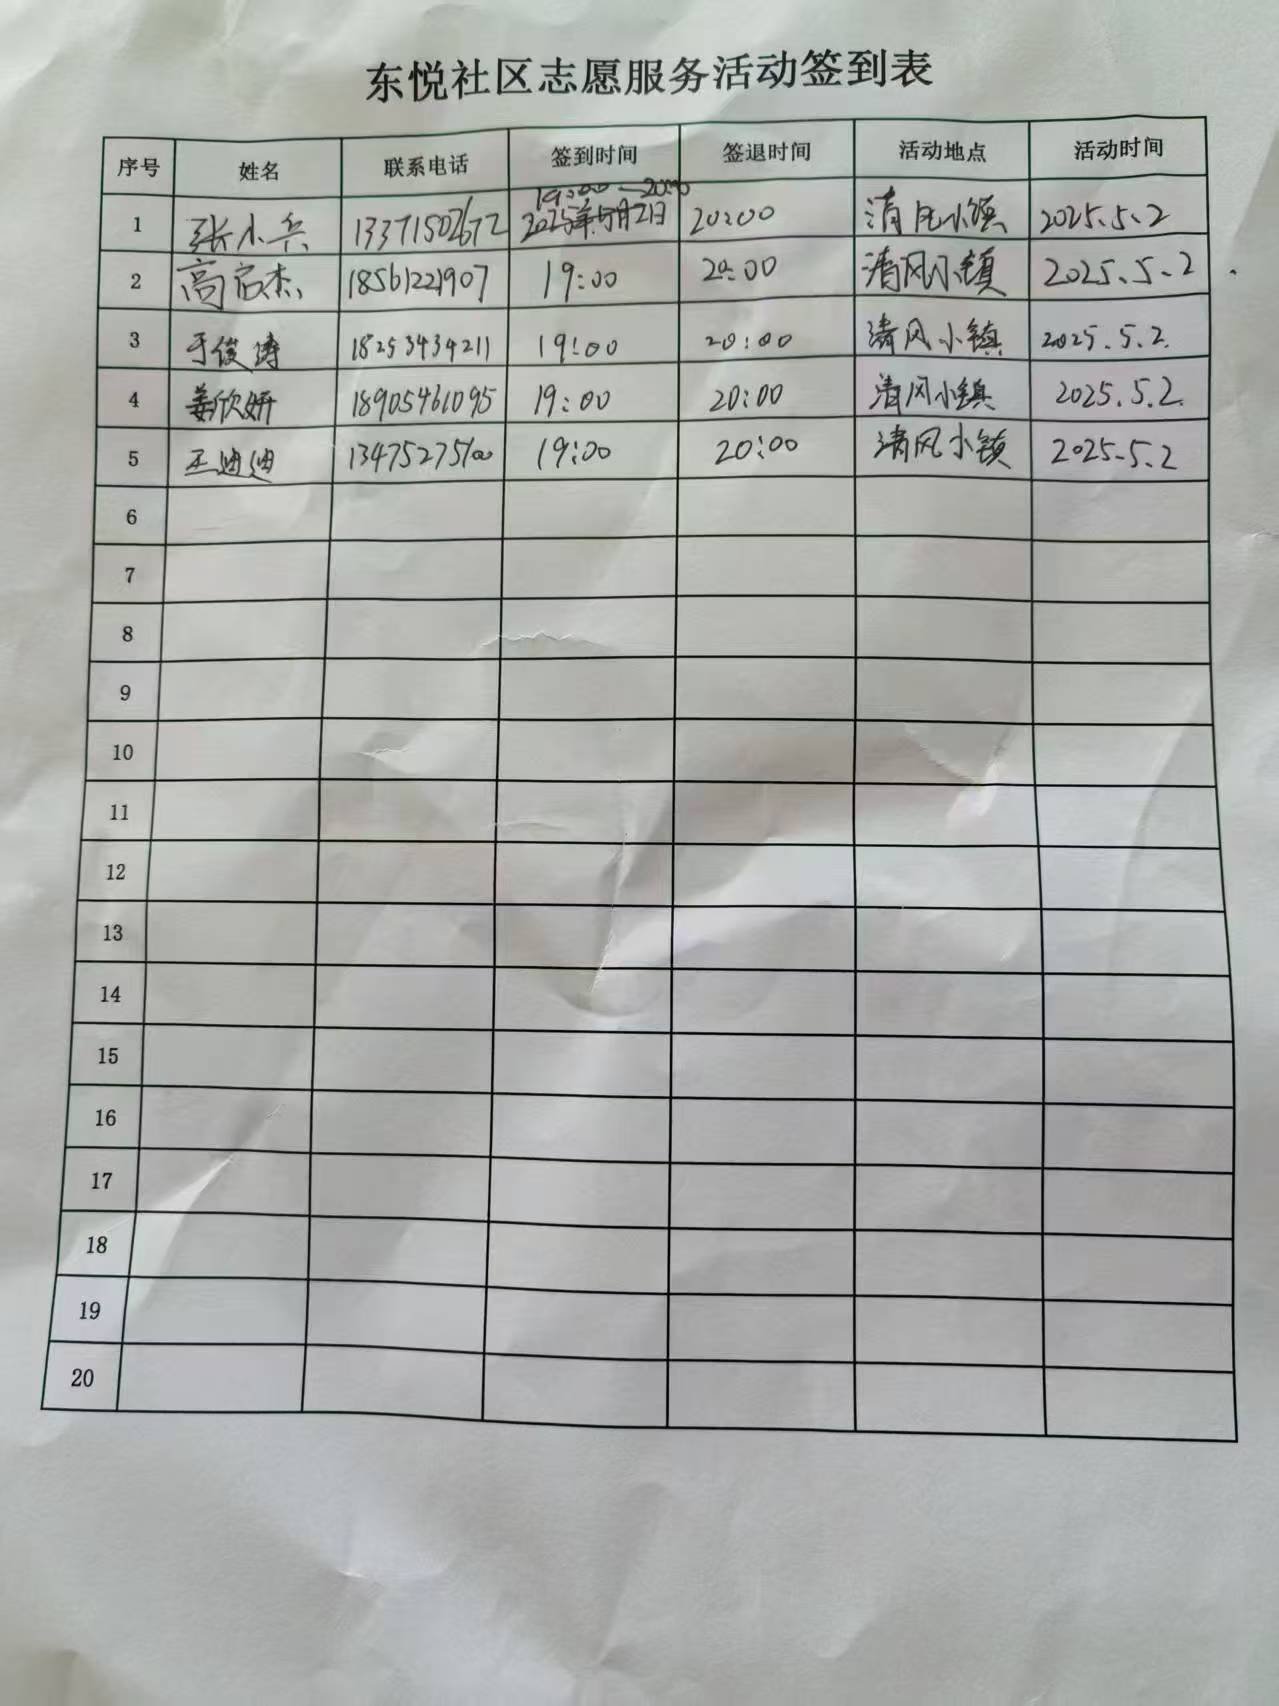 东悦社区志愿服务活动签到表
序号 姓名 联系电话 签到时间 签退时间 活动地点 活动时间
19:00—20:00
1 张小兵 13371507672 2025年5月2日 20:00 清风小镇 2025.5.2
2 高启杰 18561221907 19:00 20:00 清风小镇 2025.5.2
3 于俊涛 18253434211 19:00 20:00 清风小镇 2025.5.2.
4 姜欣妍 18905461095 19:00 20:00 清风小镇 2025.5.2.
5 王迪迪 19:00 20:00 清风小镇 2025.5.2
6
7
8
9
10
11
12
13
14
15
16
17
18
19
20